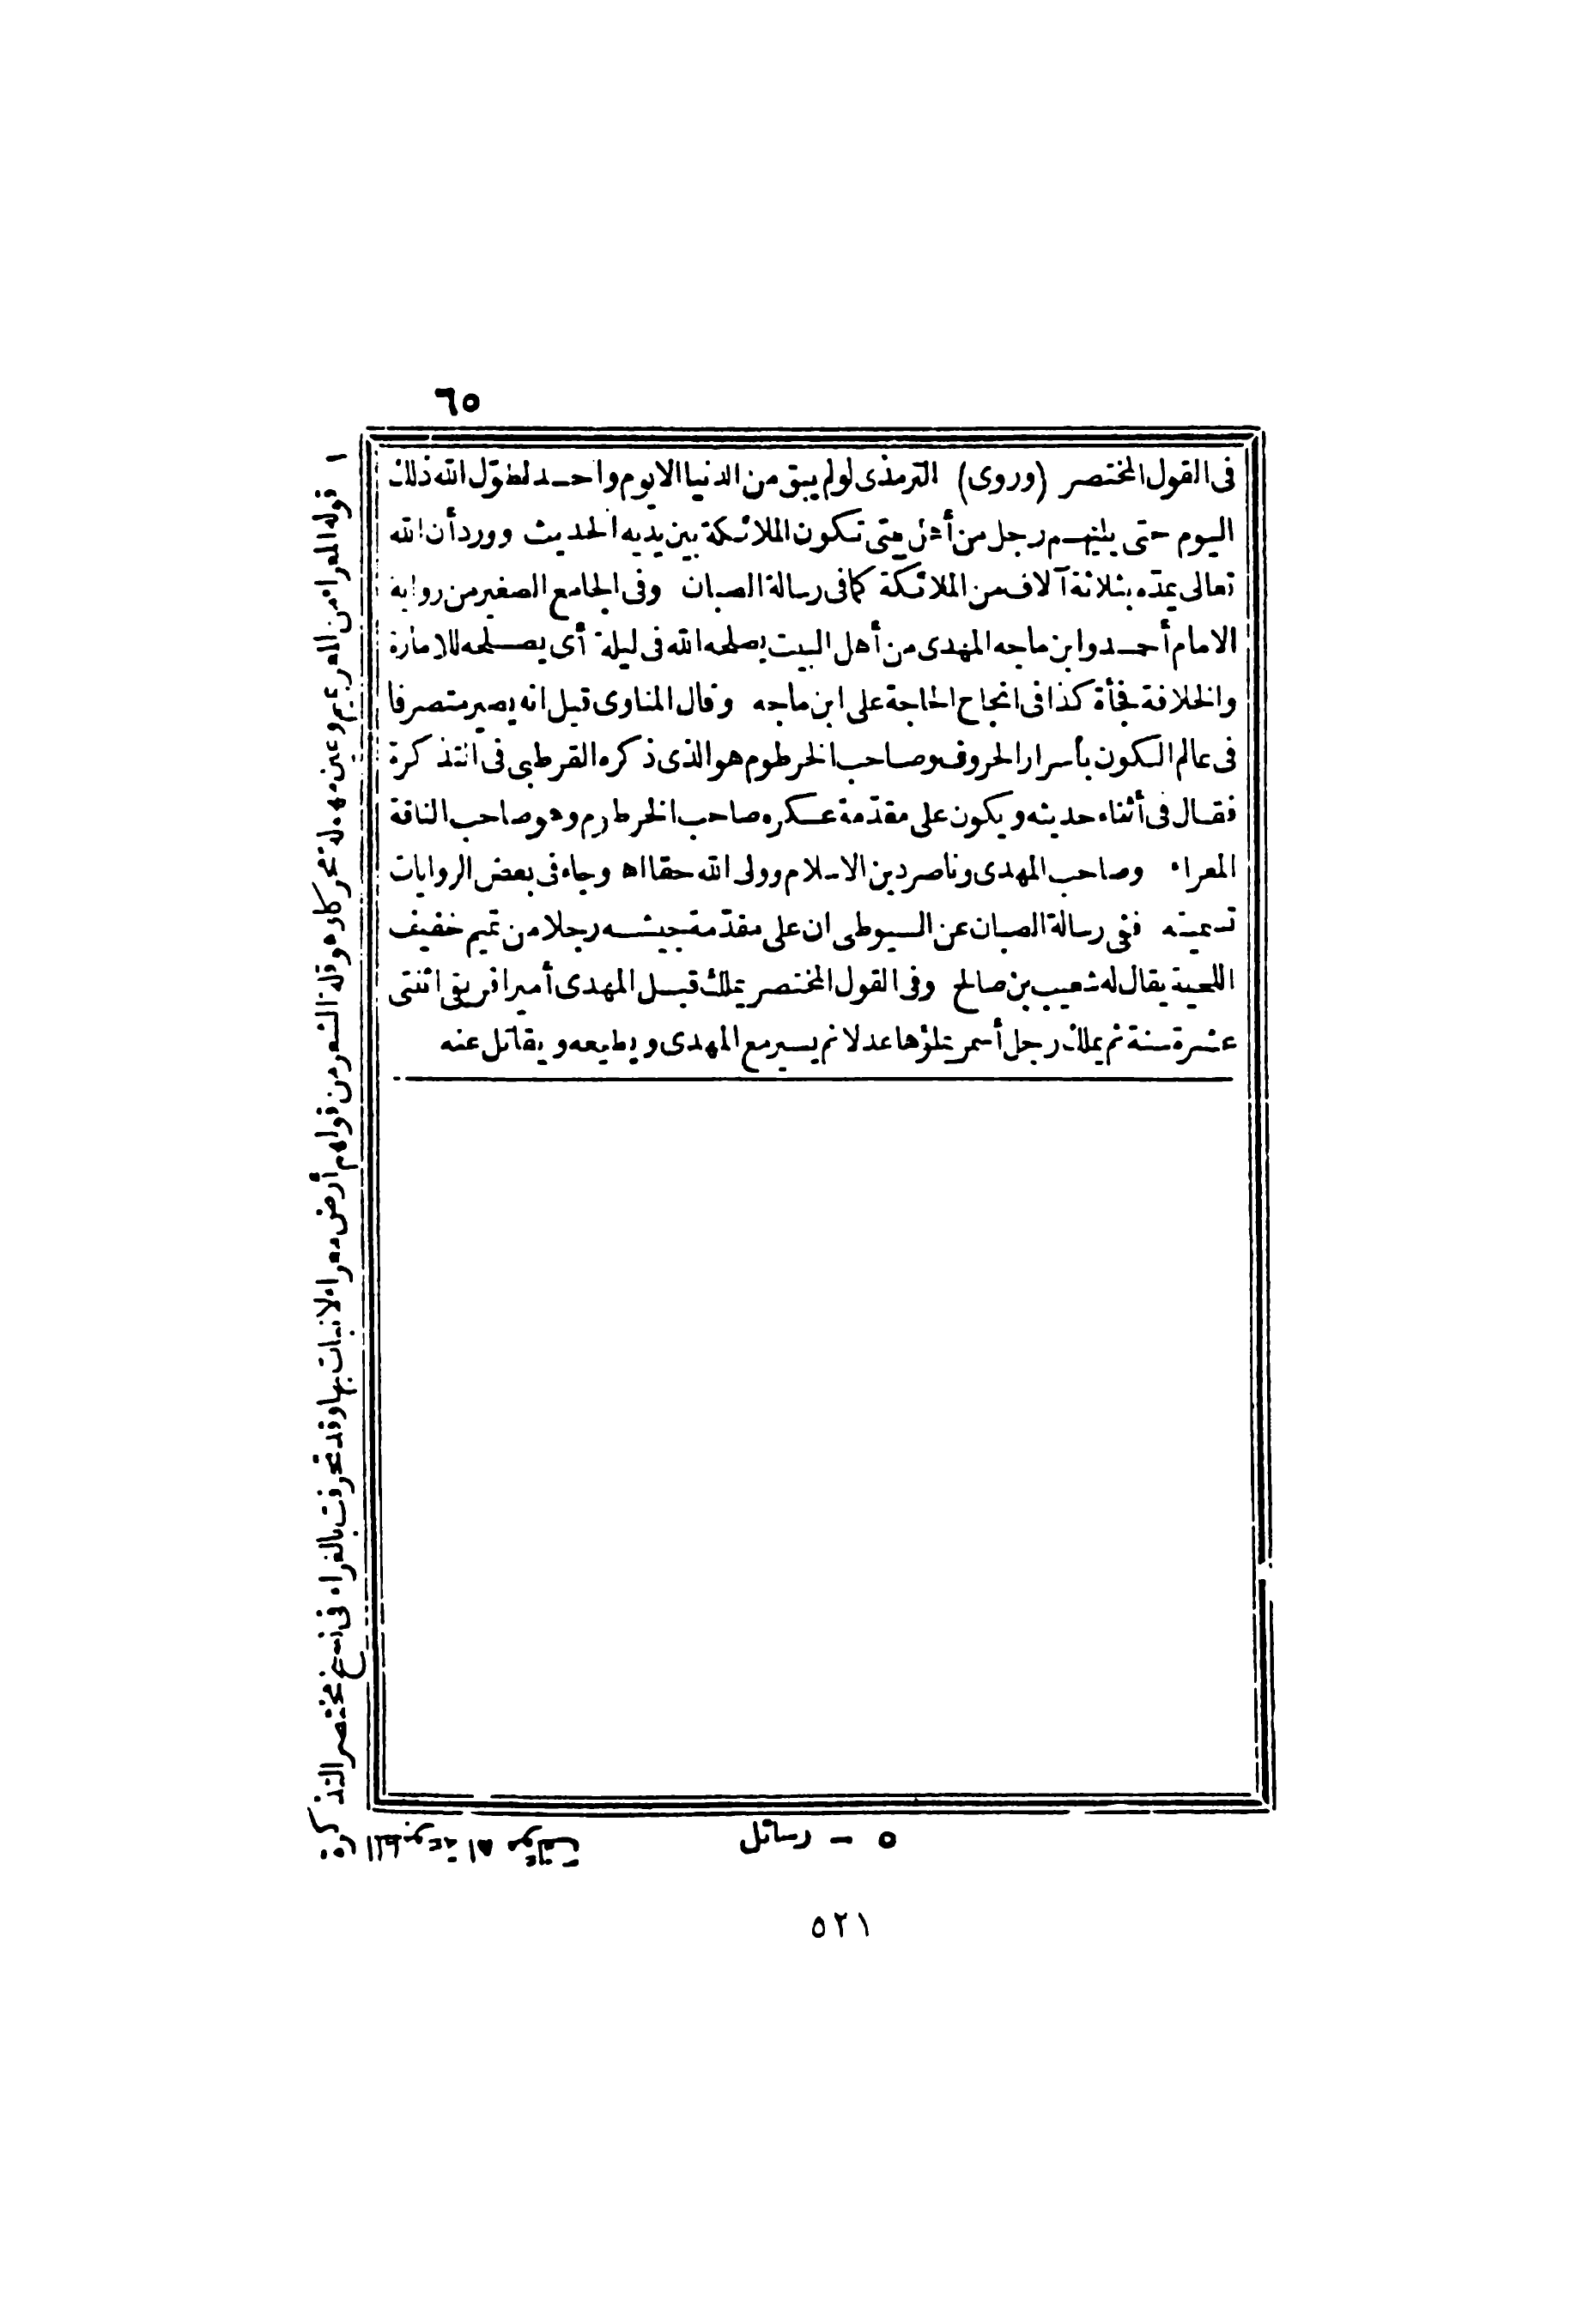 ٦٥
فى القول المختصر (وروى) الترمذى لولم يبق من الدنيا الايوم واحد لطوّل الله ذلك
اليوم حتى يليهم رجل من أهل بيتى تكون الملائكة بين يديه الحديث ووردأن الله
تعالى يمدّه بثلاثة آلاف من الملائكة كمافى رسالة الصبان وفى الجامع الصغير من رواية
الامام أحمد وابن ماجه المهدى من أهل البيت يصلحه الله فى ليلة أى يصلحه للامارة
والخلافة فجأة كذا فى انجاح الحاجة على ابن ماجه وقال المناوى قيل انه يصير متصرفا
فى عالم الكون بأسرار الحروف وصاحب الخرطوم هو الذى ذكره القرطبى فى التذكرة
فقال فى أثناء حديثه ويكون على مقدّمة عسكره صاحب الخرطوم وهو صاحب الناقة
المعراء وصاحب المهدى وناصر دين الاسلام وولى الله حقا اه وجاء فى بعض الروايات
تسميته ففى رسالة الصبان عن السيوطى ان على مقدّمة جيشه رجلا من تميم خفيف
اللحية يقال له شعيب بن صالح وفى القول المختصر يملك قبل المهدى أمير افريق اثنتى
عشرة سنة ثم يملك رجل أسمر يملؤها عدلا ثم يسير مع المهدى ويطيعه ويقاتل عنه
١ قوله المعراء من المعر بميم وعين مهملة محركا وهو قلة الشعر من قولهم أرض معراء لا نبات بها وقد تحرفت بالفراء فى نسخ مختصر التذكرة
المطبوعة اه مؤلفه
٥ — رسائل
٥٢١